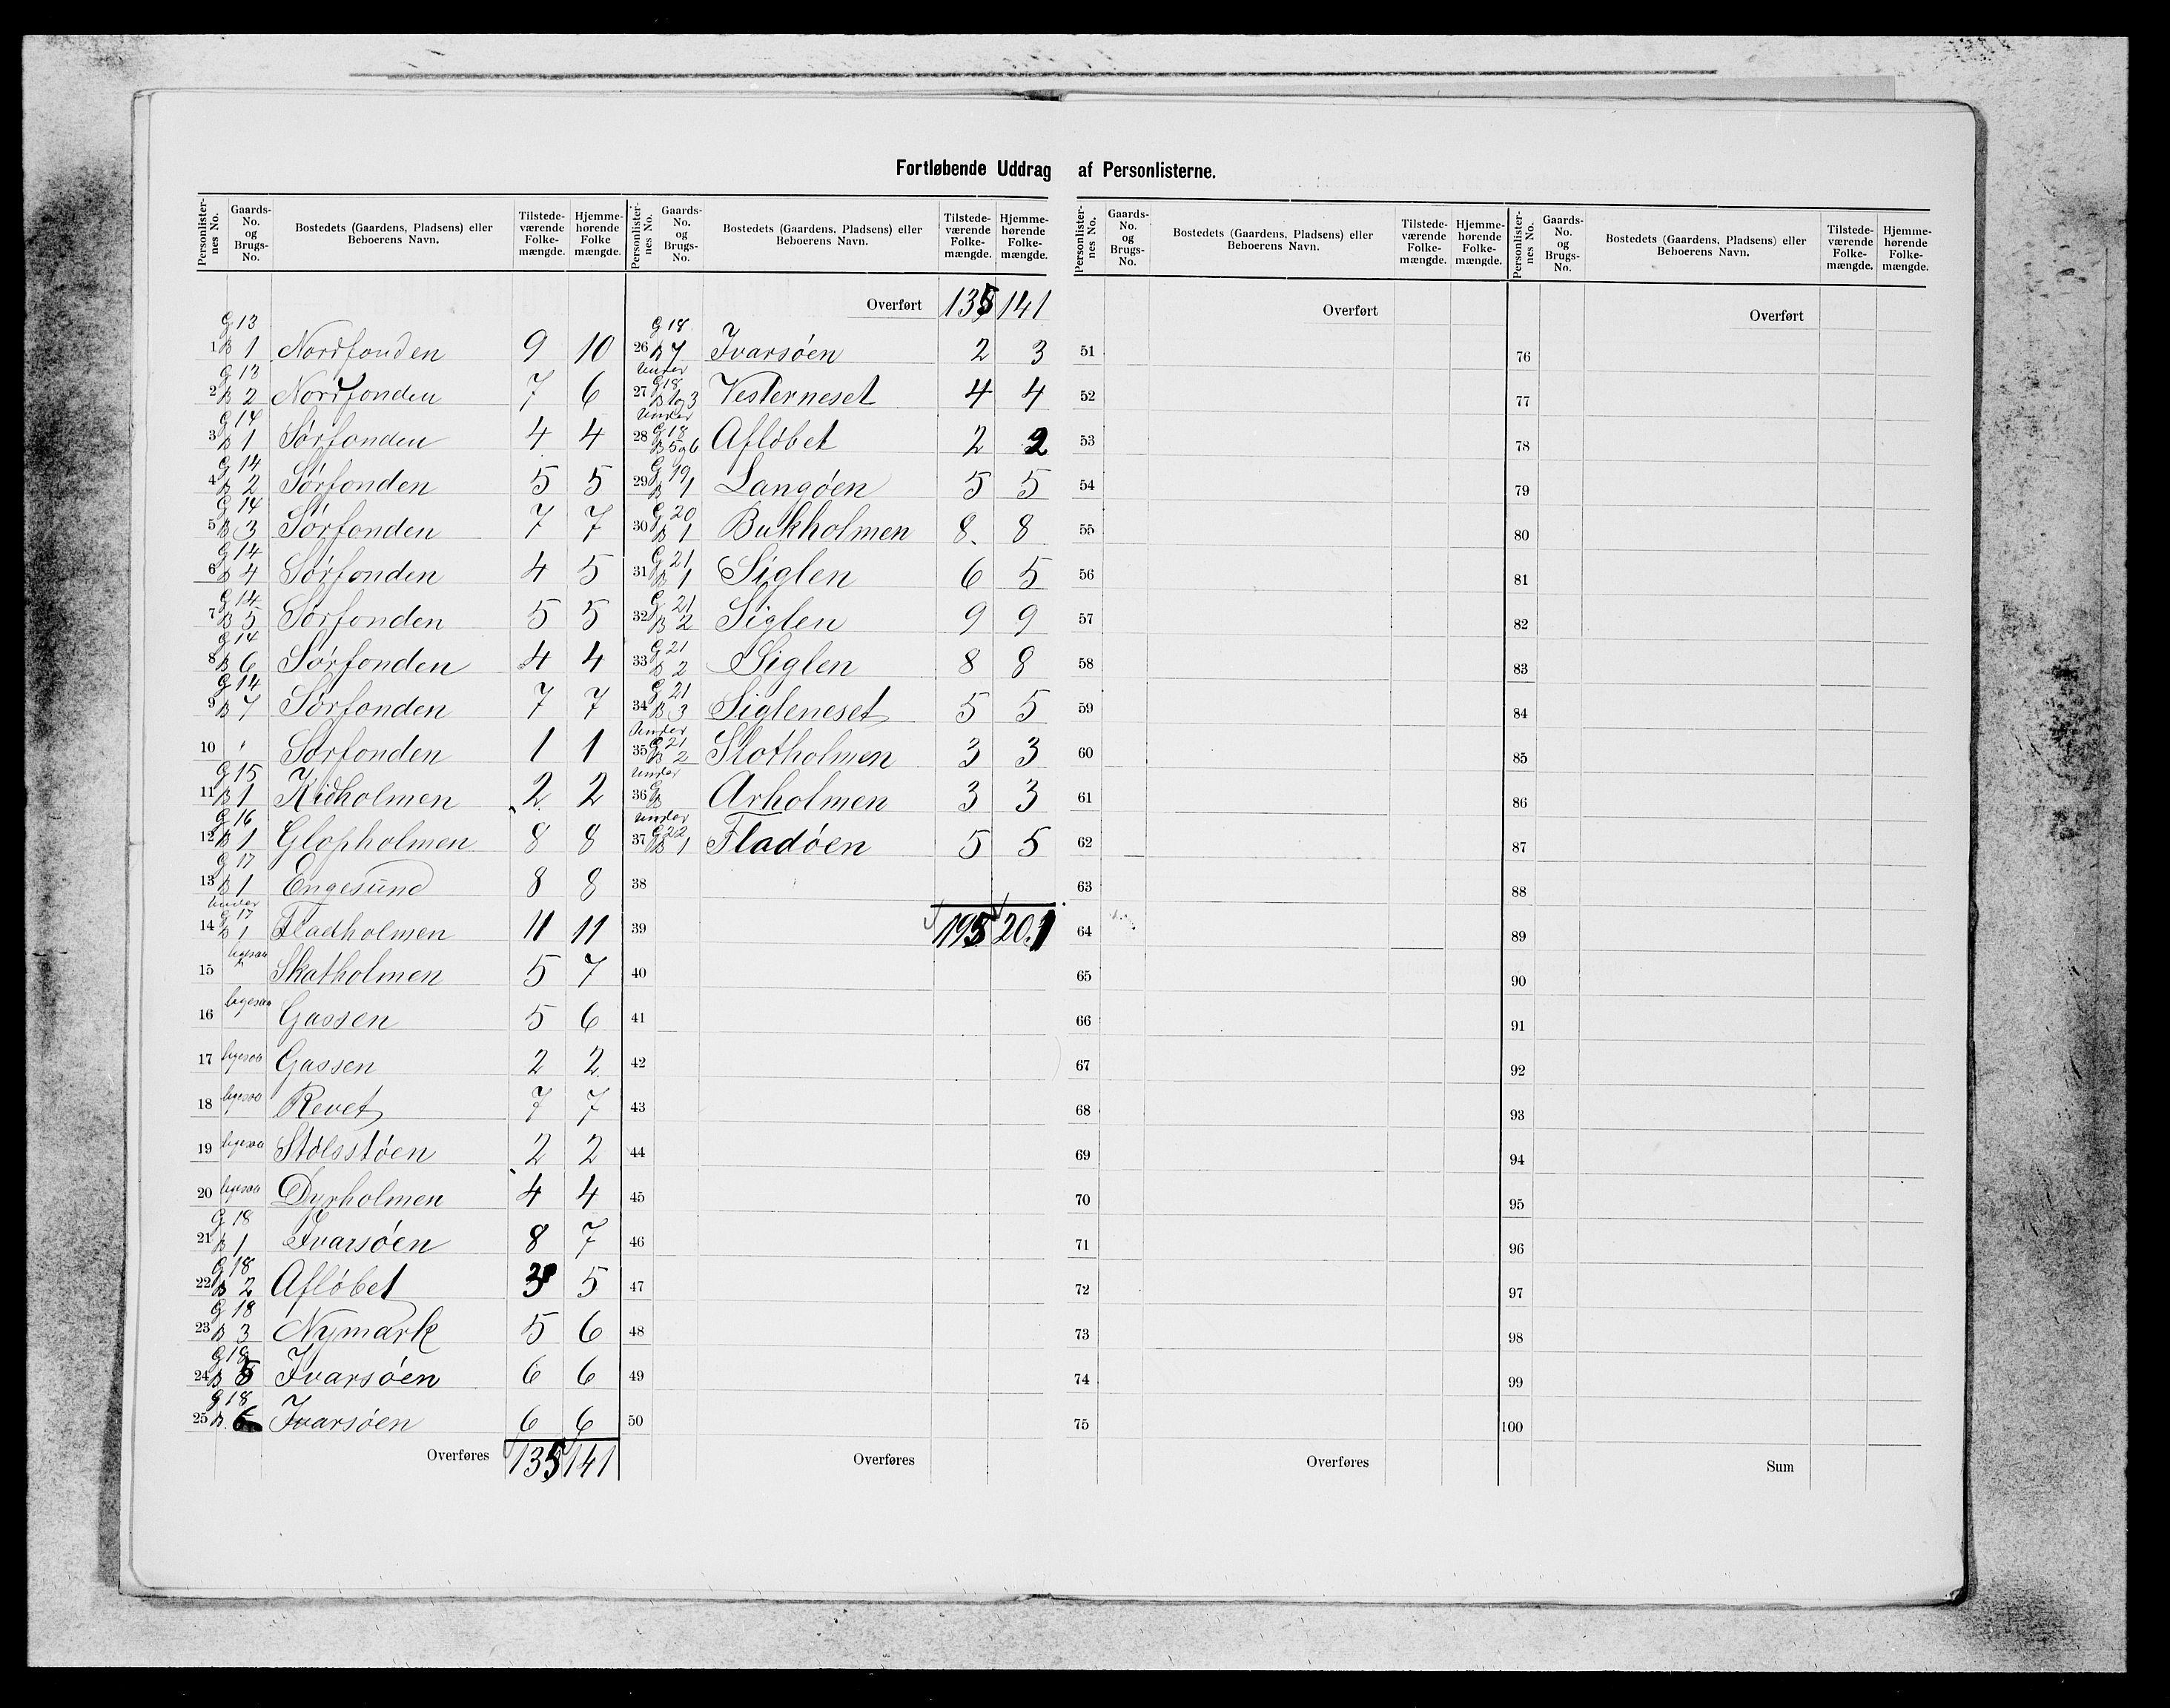 Fortløbende Uddrag af Personlisterne.
Personlisternes No. Gaards-No. og Brugs-No. Bostedets (Gaardens, Pladsens) eller Beboerens Navn. Tilstedeværende Folkemængde. Hjemmehørende Folkemængde.
1 G 13 B 1 Nordfonden 9 10
2 G 13 B 2 Nordfonden 7 6
3 G 14 B 1 Sørfonden 4 4
4 G 14 B 2 Sørfonden 5 5
5 G 14 B 3 Sørfonden 7 7
6 G 14 B 4 Sørfonden 4 5
7 G 14 B 5 Sørfonden 5 5
8 G 14 B 6 Sørfonden 4 4
9 G 14 B 7 Sørfonden 7 7
10 " Sørfonden 1 1
11 G 15 B 1 Kidholmen 2 2
12 G 16 B 1 Glopholmen 8 8
13 G 17 B 1 Engesund 8 8
14 Under G 17 B 1 Fladholmen 11 11
15 ligesaa Skatholmen 5 7
16 ligesaa Gassen 5 6
17 ligesaa Gassen 2 2
18 ligesaa Revet 7 7
19 ligesaa Stølsstøen 2 2
20 ligesaa Dyrholmen 4 4
21 G 18 B 1 Ivarsøen 8 7
22 G 18 B 2 Afløbet 3 5
23 G 18 B 3 Nymark 5 6
24 G 18 B 5 Ivarsøen 6 6
25 G 18 B. 6 Ivarsøen 6 6
Overføres 135 141
Personlisternes No. Gaards-No. og Brugs-No. Bostedets (Gaardens, Pladsens) eller Beboerens Navn. Tilstedeværende Folkemængde. Hjemmehørende Folkemængde.
Overført 135 141
26 G 18 B 7 Ivarsøen 2 3
27 Under G 18 B 1 og 3 Vesterneset 4 4
28 Under G 18 B 5 og 6 Afløbet 2 2
29 G 19 B 1 Langøen 5 5
30 G 20 B 1 Bukholmen 8. 8
31 G 21 B 1 Siglen 6 5
32 G 21 B 2 Siglen 9 9
33 G 21 B 2 Siglen 8 8
34 G 21 B 3 Sigleneset 5 5
35 Under G 21 B 2 Slotholmen 3 3
36 Under G B Arholmen 3 3
37 Under G 22 B 1 Fladøen 5 5
38
39 195 201
40
41
42
43
44
45
46
47
48
49
50
Overføres
Personlisternes No. Gaards-No. og Brugs-No. Bostedets (Gaardens, Pladsens) eller Beboerens Navn. Tilstedeværende Folkemængde. Hjemmehørende Folkemængde.
Overført
51
52
53
54
55
56
57
58
59
60
61
62
63
64
65
66
67
68
69
70
71
72
73
74
75
Overføres
Personlisternes No. Gaards-No. og Brugs-No. Bostedets (Gaardens, Pladsens) eller Beboerens Navn. Tilstedeværende Folkemængde. Hjemmehørende Folkemængde.
Overført
76
77
78
79
80
81
82
83
84
85
86
87
88
89
90
91
92
93
94
95
96
97
98
99
100
Sum